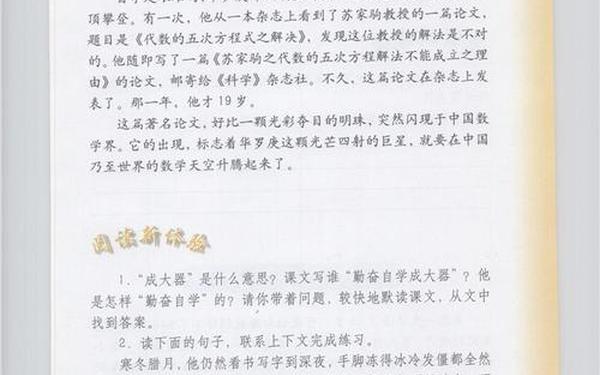 顶攀登。有一次，他从一本杂志上看到了苏家驹教授的一篇论文，
题目是《代数的五次方程式之解决》，发现这位教授的解法是不对
的。他随即写了一篇《苏家驹之代数的五次方程解法不能成立之理
由》的论文，邮寄给《科学》杂志社。不久，这篇论文在杂志上发
表了。那一年，他才19岁。
这篇著名论文，好比一颗光彩夺目的明珠，突然闪现于中国数
学界。它的出现，标志着华罗庚这颗光芒四射的巨星，就要在中国
乃至世界的数学天空升腾起来了。
阅读新体验
1．“成大器”是什么意思？课文写谁“勤奋自学成大器”？他
是怎样“勤奋自学”的？请你带着问题，较快地默读课文，从文中
找到答案。
2．读下面的句子，联系上下文完成练习。
寒冬腊月，他仍然看书写字到深夜，手脚冻得冰冷发僵都全然